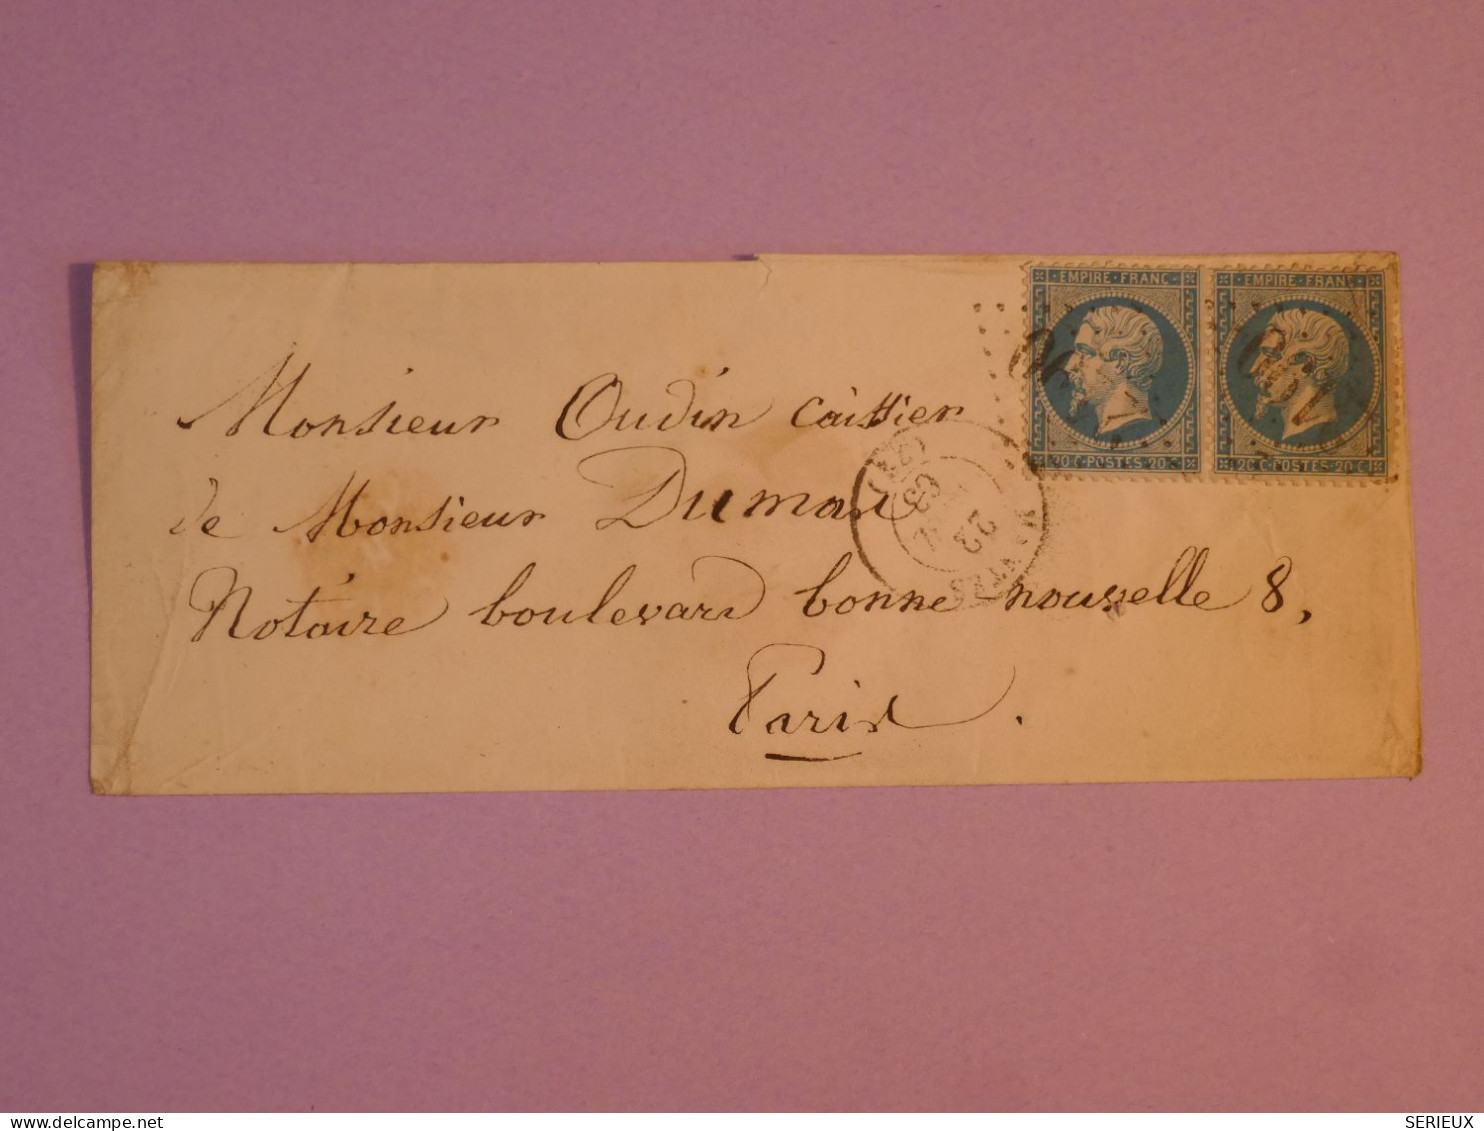 EMPIRE FRANC
EMPIRE FRANC
20 C POSTES 20 C
20 C POSTES 20 C
Monsieur Oudin caissier
de Monsieur Dumas
Notaire boulevard bonne nouvelle 8,
Paris.
23
63
www.delcampe.net
SERIEUX